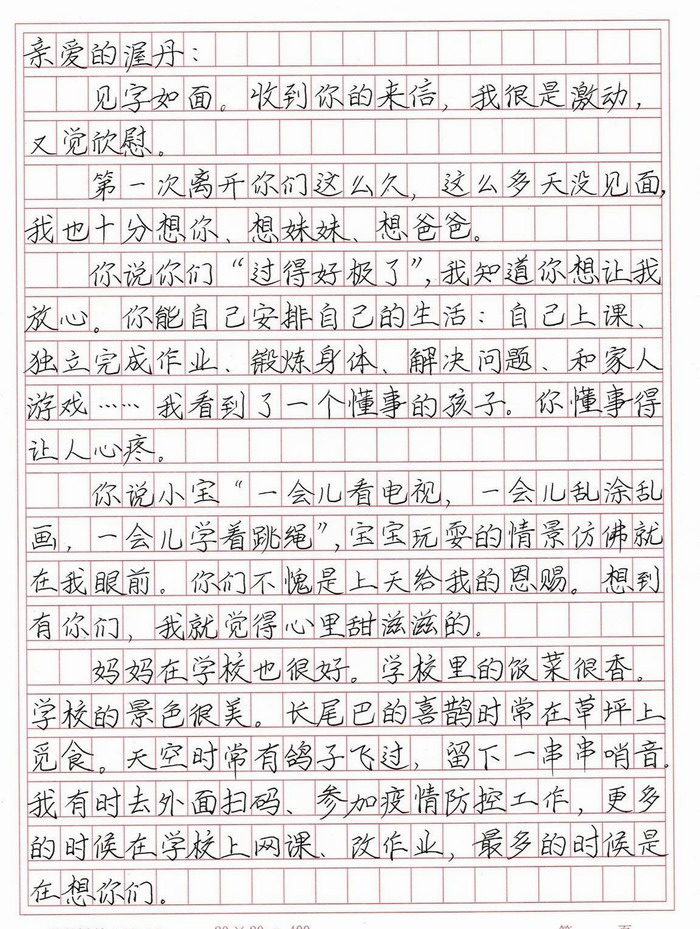 亲爱的渥丹：
见字如面。收到你的来信，我很是激动，
又觉欣慰。
第一次离开你们这么久，这么多天没见面，
我也十分想你、想妹妹、想爸爸。
你说你们“过得好极了”，我知道你想让我
放心。你能自己安排自己的生活：自己上课、
独立完成作业、锻炼身体、解决问题、和家人
游戏……我看到了一个懂事的孩子。你懂事得
让人心疼。
你说小宝“一会儿看电视，一会儿乱涂乱
画，一会儿学着跳绳”，宝宝玩耍的情景仿佛就
在我眼前。你们不愧是上天给我的恩赐。想到
有你们，我就觉得心里甜滋滋的。
妈妈在学校也很好。学校里的饭菜很香。
学校的景色很美。长尾巴的喜鹊时常在草坪上
觅食。天空时常有鸽子飞过，留下一串串哨音。
我有时去外面扫码、参加疫情防控工作，更多
的时候在学校上网课、改作业，最多的时候是
在想你们。